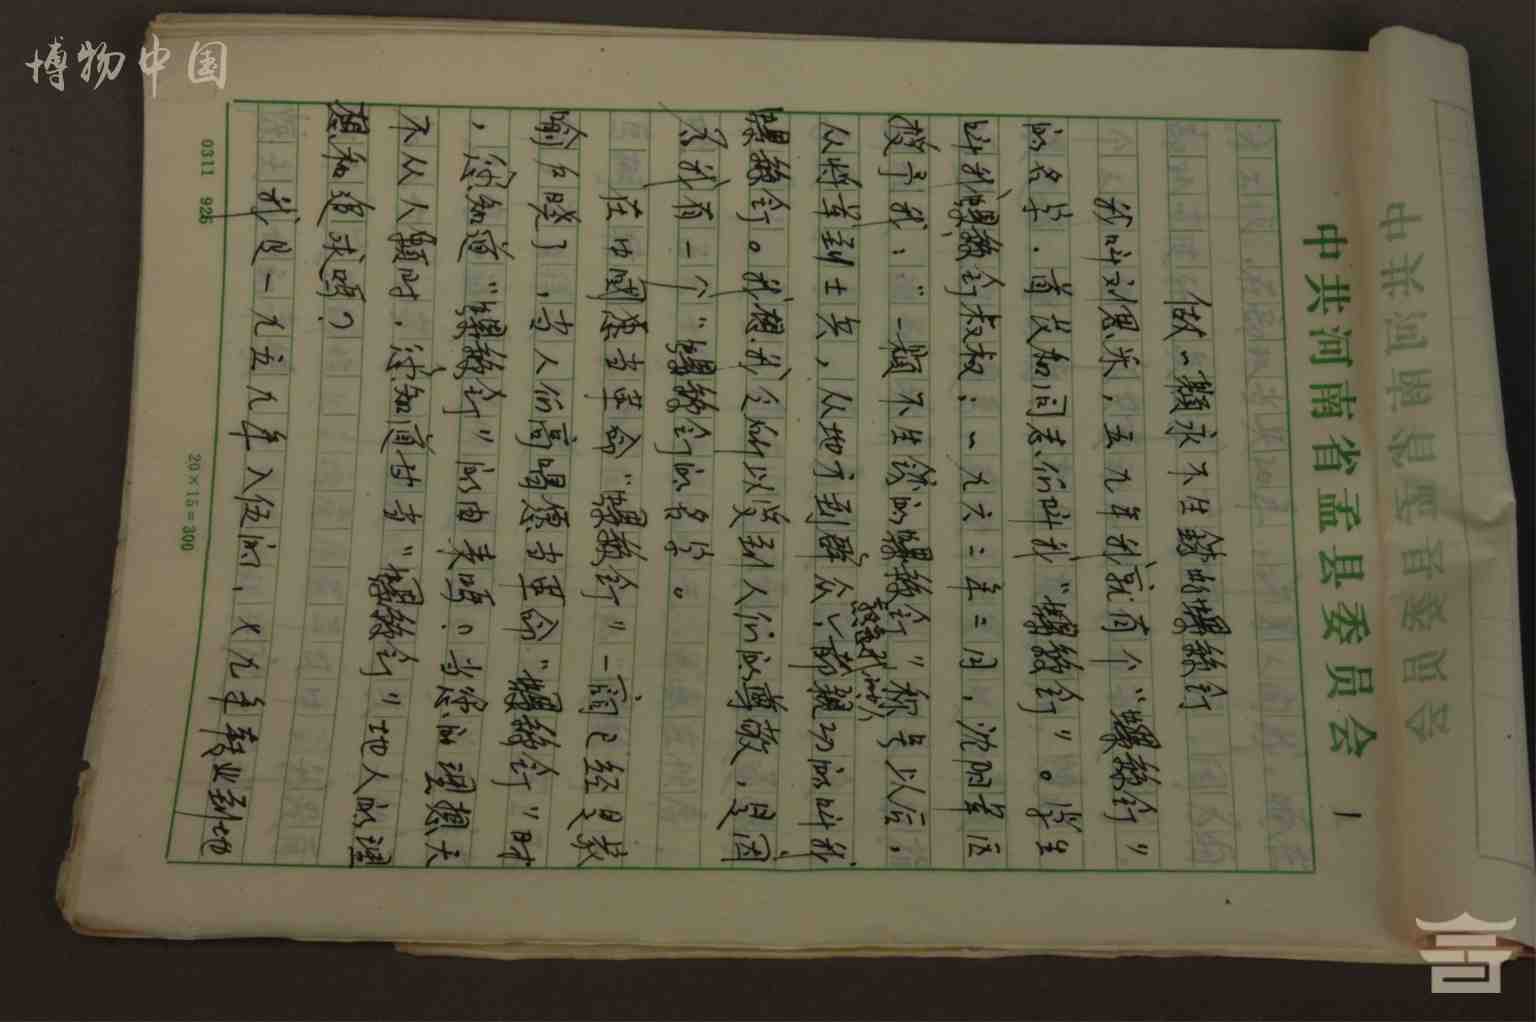 博物中国
中共河南省孟县委员会 1
做一颗永不生锈的螺丝钉
我叫刘恩米，五九年我就有个“螺丝钉”
的名字．首长和同志们叫我“螺丝钉”。学生
叫我螺丝钉叔叔；一九六二年二月，沈阳军区
授予我：“一颗不生锈的螺丝钉”称号以后，
从将军到士兵，从地方到群众，都亲切的叫我
螺丝钉。我想我之所以受到人们的尊敬，是因
为我有一个“螺丝钉的名字。
在中国愿当革命“螺丝钉”一词已经是家
喻户晓了，当人们高唱愿当革命“螺丝钉”时
，您知道“螺丝钉”的由来吗？当您的理想天
不从人愿时，您知道甘当“螺丝钉”地人的理
想和追求吗？
我是一九五九年入伍的，七九年转业到地
0311 925
20×15=300